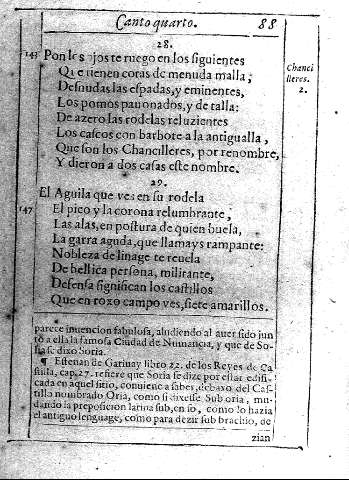 Canto quarto. 88
28.
145 Pon les ojos te ruego en los siguientes
Que tienen cotas de menuda malla;
Desnudas las espadas, y eminentes,
Los pomos pauonados, y de talla:
De azero las rodelas reluzientes
Los cascos con barbote a la antigualla,
Que son los Chancilleres, por renombre,
Y dieron a dos casas este nombre.
Chanci
lleres.
2.
29.
El Aguila que ves en su rodela
147 El pico y la corona relumbrante,
Las alas, en postura de quien buela,
La garra aguda, que llamays rampante:
Nobleza de linage te reuela
De bellica persona, militante,
Defensa significan los castillos
Que en roxo campo ves, siete amarillos.
parece inuencion fabulosa, aludiendo al auer sido jun
to a ella la famosa Ciudad de Numancia, y que de So-
ria se dixo Soria.
¶ Esteuan de Garibay libro 22. de los Reyes de Ca
stilla, cap. 27. refiere que Soria se dize por estar edifi-
cada en aquel sitio, conuiene a saber, debaxo del Cas-
tillo nombrado Oria, como si dixesse Sub oria, mu-
dando la preposicion latina sub, en so, como lo hazia
el antiguo lenguage, como para dezir sub brachio, de
zian